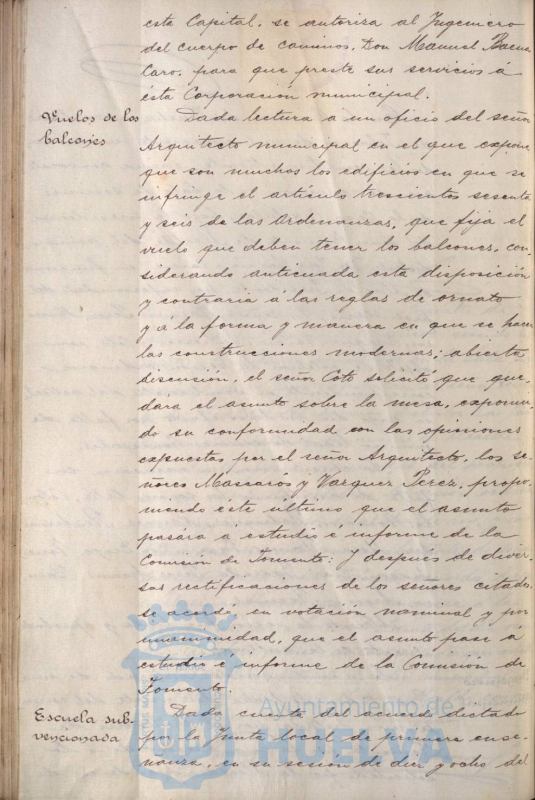 esta Capital, se autoriza al Ingeniero
del cuerpo de caminos, Don Manuel Baena
Caro, para que preste sus servicios á
ésta Corporación municipal.
Vuelos de los
balcones
Dada lectura a un oficio del señor
Arquitecto municipal en el que expone
que son muchos los edificios en que se
infringe el artículo trescientos sesenta
y seis de las Ordenanzas, que fija el
vuelo que deben tener los balcones, con-
siderando anticuada esta disposición
y contraria á las reglas de ornato
y á la forma y manera en que se hacen
las construcciones modernas; abierta
discusión, el señor Coto solicitó que que-
dara el asunto sobre la mesa, exponien-
do su conformidad con las opiniones
expuestas por el señor Arquitecto, los se-
ñores Massarós y Vazquez Perez, propo-
niendo éste último que el asunto
pasara á estudio é informe de la
Comisión de Fomento: Y después de diver-
sas rectificaciones de los señores citados
se acordó, en votación nominal y por
unanimidad, que el asunto pase á
estudio é informe de la Comisión de
Fomento.
Escuela sub-
vencionada
Dada cuenta del acuerdo dictado
por la Junta local de primera ense-
nanza, en su sesión de diez y ocho del
Ayuntamiento de
HUELVA